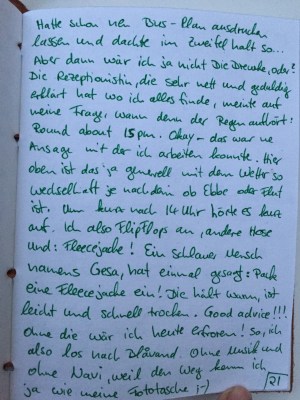 Hatte schon nen Bus-Plan ausdrucken
lassen und dachte im Zweifel halt so...
Aber dann wär ich ja nicht Die Dreuke, oder?
Die Rezeptionistin, die sehr nett und geduldig
erklärt hat wo ich alles finde, meinte auf
meine Frage, wann denn der Regen aufhört:
Round about 15 pm. Okay - das war ne
Ansage mit der ich arbeiten konnte. Hier
oben ist das ja generell mit dem Wetter so
wechselhaft je nachdem ob Ebbe oder Flut
ist. Um kurz nach 14 Uhr hörte es kurz
auf. Ich also FlipFlops an, andere Hose
und: Fleecejacke! Ein schlauer Mensch
namens Gesa, hat einmal gesagt: Packe
eine Fleecejacke ein! Die hält warm, ist
leicht und schnell trocken. Good advice!!!
ohne die wär ich heute erfroren! So, ich
also los nach Blåvand. Ohne Musik und
ohne Navi, weil den Weg kenn ich
ja wie meine Fototasche ;-)
21